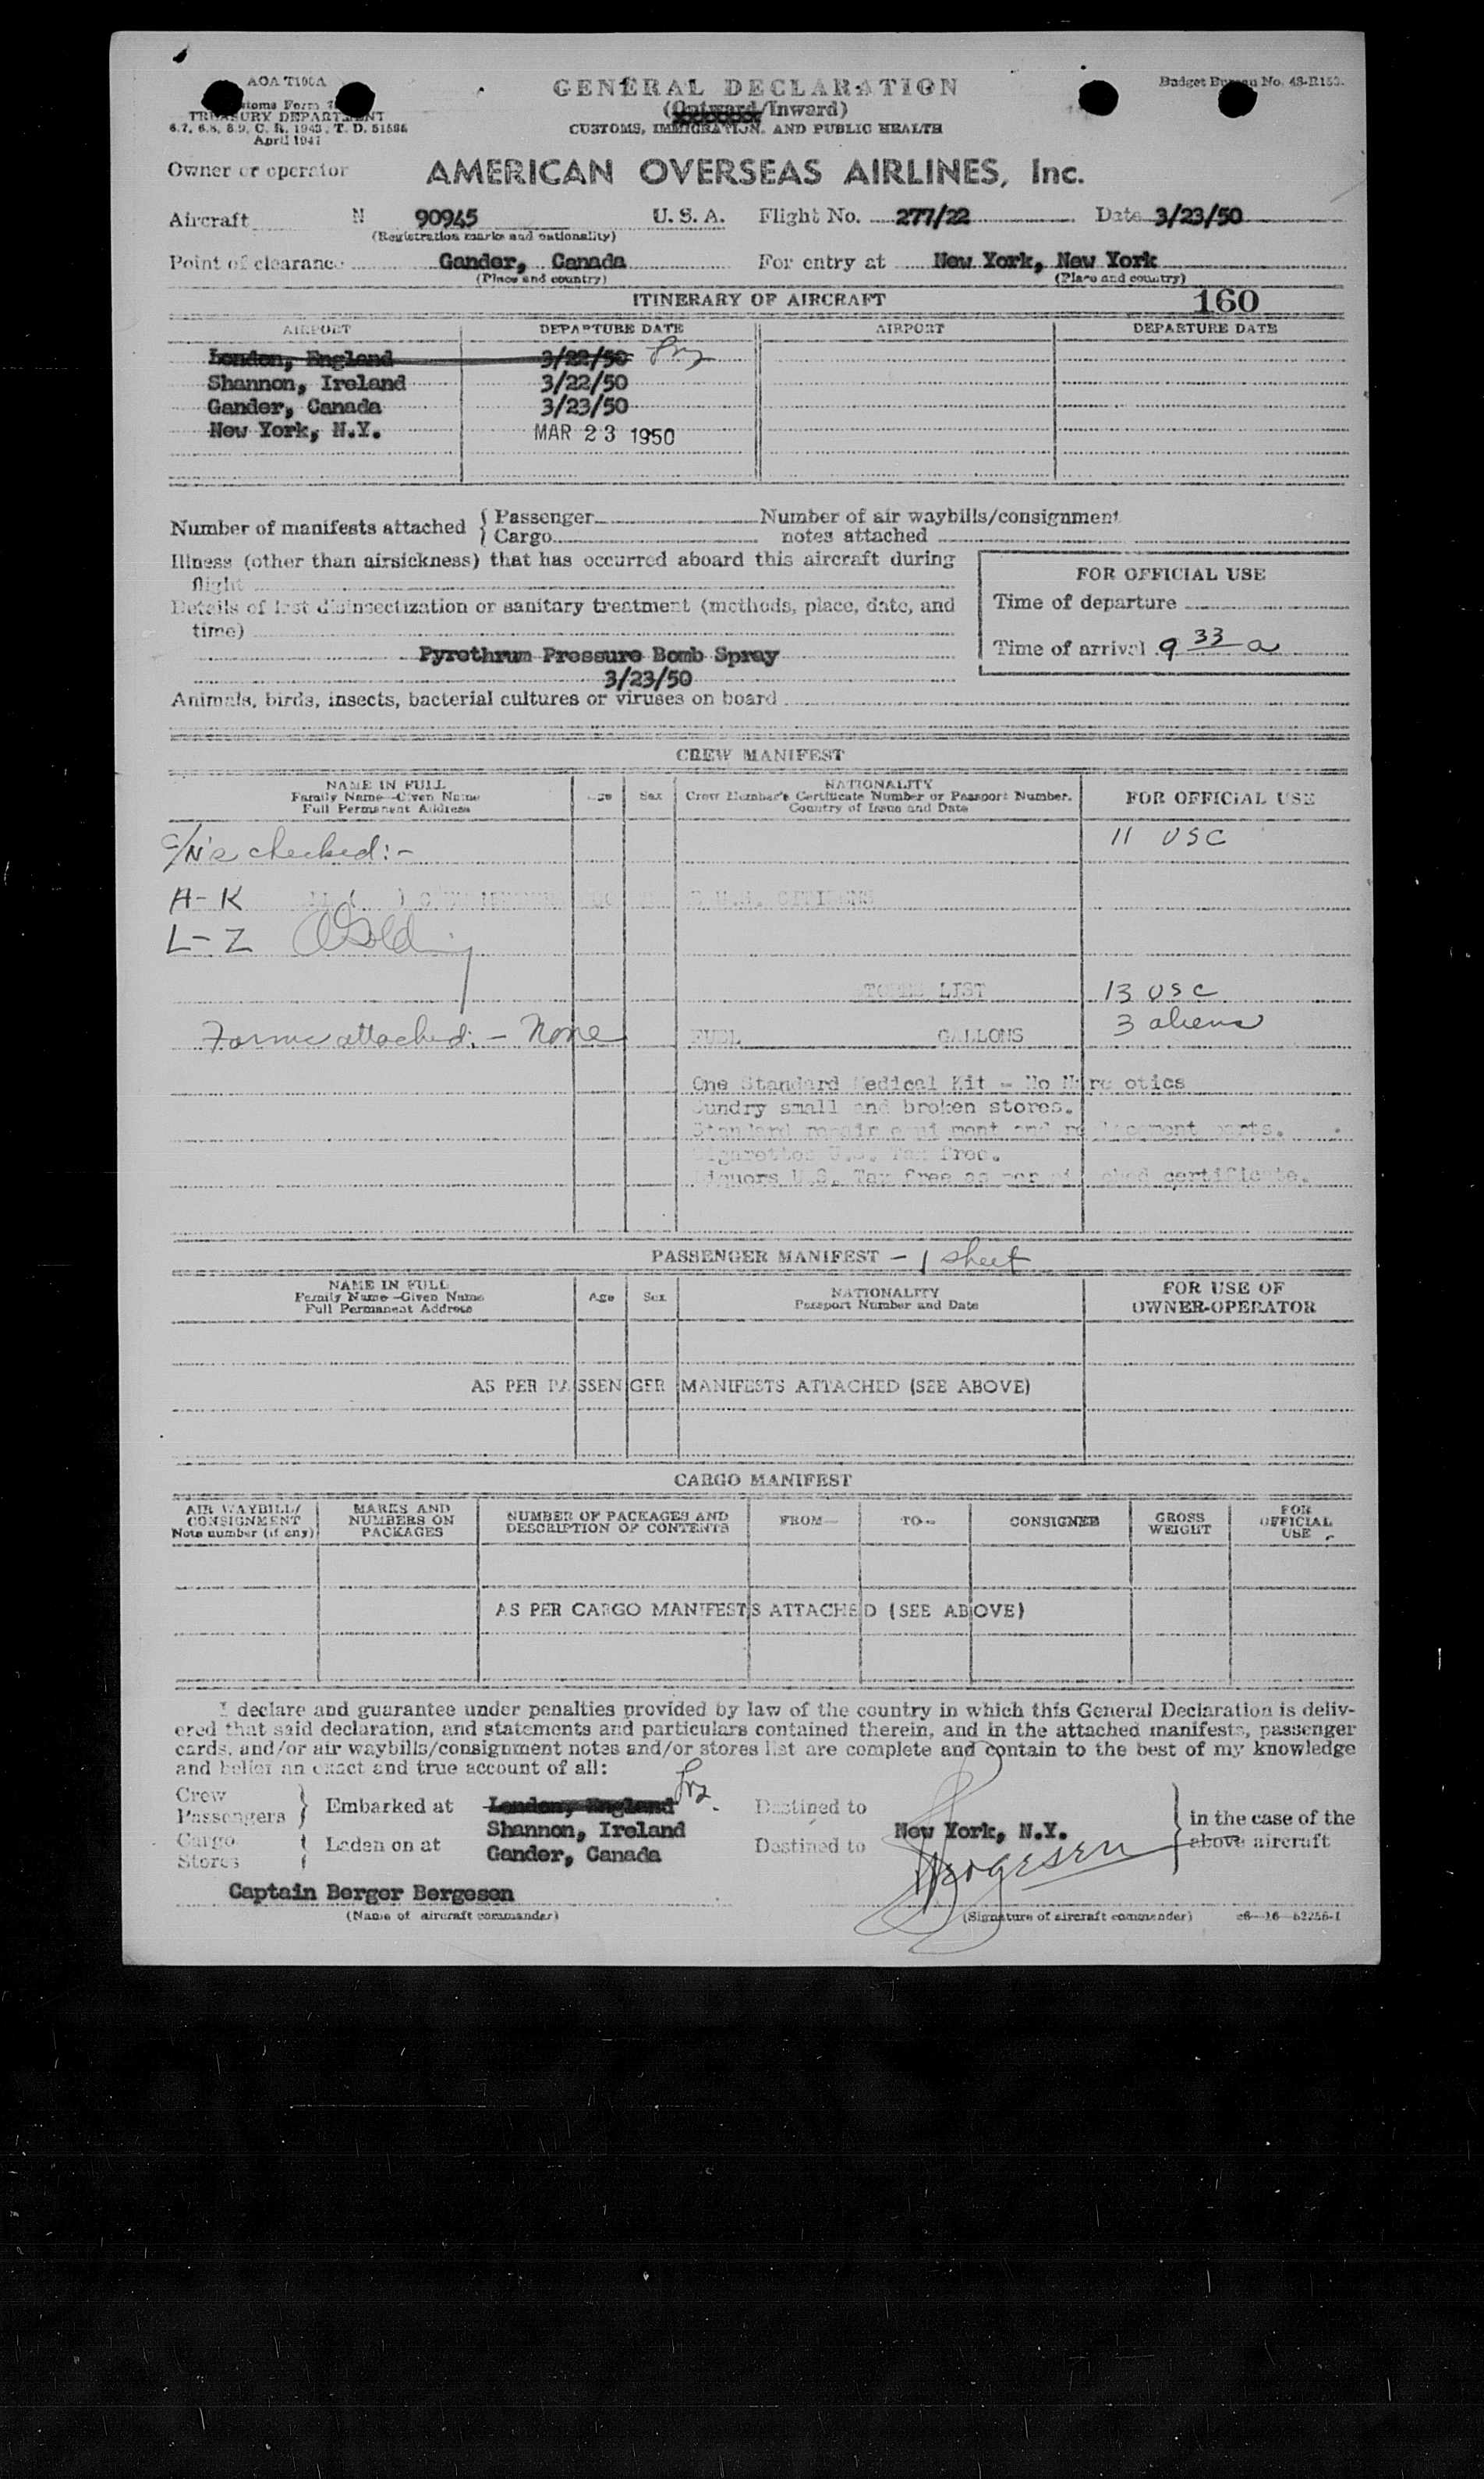 AOA T100A
GENERAL DECLARATION
Budget Bureau No. 48-R153.
Customs Form
(Outward/Inward)
TREASURY DEPARTMENT
CUSTOMS, IMMIGRATION, AND PUBLIC HEALTH
6.7, 6.8, 6.9, C. R. 1943, T. D.
April 1947
Owner or operator AMERICAN OVERSEAS AIRLINES, Inc.
Aircraft N 90945 U. S. A. Flight No. 277/22 Date 3/23/50
(Registration marks and nationality)
Point of clearance Gander, Canada For entry at New York, New York
(Place and country) (Place and country)
ITINERARY OF AIRCRAFT 160
AIRPORT DEPARTURE DATE AIRPORT DEPARTURE DATE
London, England 3/22/50
Shannon, Ireland 3/22/50
Gander, Canada 3/23/50
New York, N.Y. MAR 23 1950
Number of manifests attached { Passenger Number of air waybills/consignment
Cargo notes attached
Illness (other than airsickness) that has occurred aboard this aircraft during
flight
FOR OFFICIAL USE
Details of last disinsectization or sanitary treatment (methods, place, date, and
time)
Time of departure
Pyrethrum Pressure Bomb Spray
Time of arrival 9 33 a
3/23/50
Animals, birds, insects, bacterial cultures or viruses on board
CREW MANIFEST
NAME IN FULL
Family Name—Given Name
Full Permanent Address
Age Sex
NATIONALITY
Crew Member's Certificate Number or Passport Number,
Country of Issue and Date
FOR OFFICIAL USE
11 USC
c/N's checked:-
A-K U.S. CITIZENS
L-Z Golding
STORES LIST 13 USC
3 aliens
Forms attached:- None FUEL GALLONS
One Standard Medical Kit - No Narcotics
Sundry small and broken stores.
Standard repair equipment and replacement parts.
Cigarettes U.S. Tax free.
Liquors U.S. Tax free as per attached certificate.
PASSENGER MANIFEST - 1 sheet
NAME IN FULL
Family Name—Given Name
Full Permanent Address
Age Sex
NATIONALITY
Passport Number and Date
FOR USE OF
OWNER-OPERATOR
AS PER PASSENGER MANIFESTS ATTACHED (SEE ABOVE)
CARGO MANIFEST
AIR WAYBILL/
CONSIGNMENT
Note number (if any)
MARKS AND
NUMBERS ON
PACKAGES
NUMBER OF PACKAGES AND
DESCRIPTION OF CONTENTS
FROM— TO— CONSIGNEE
GROSS
WEIGHT
FOR
OFFICIAL
USE
AS PER CARGO MANIFESTS ATTACHED (SEE ABOVE)
I declare and guarantee under penalties provided by law of the country in which this General Declaration is deliv-
ered that said declaration, and statements and particulars contained therein, and in the attached manifests, passenger
cards, and/or air waybills/consignment notes and/or stores list are complete and contain to the best of my knowledge
and belief an exact and true account of all:
Crew
Passengers } Embarked at London, England Destined to
Shannon, Ireland New York, N.Y.
in the case of the
above aircraft
Cargo
Stores } Laden on at Gander, Canada Destined to
Bergesen
Captain Berger Bergesen
(Name of aircraft commander) (Signature of aircraft commander)